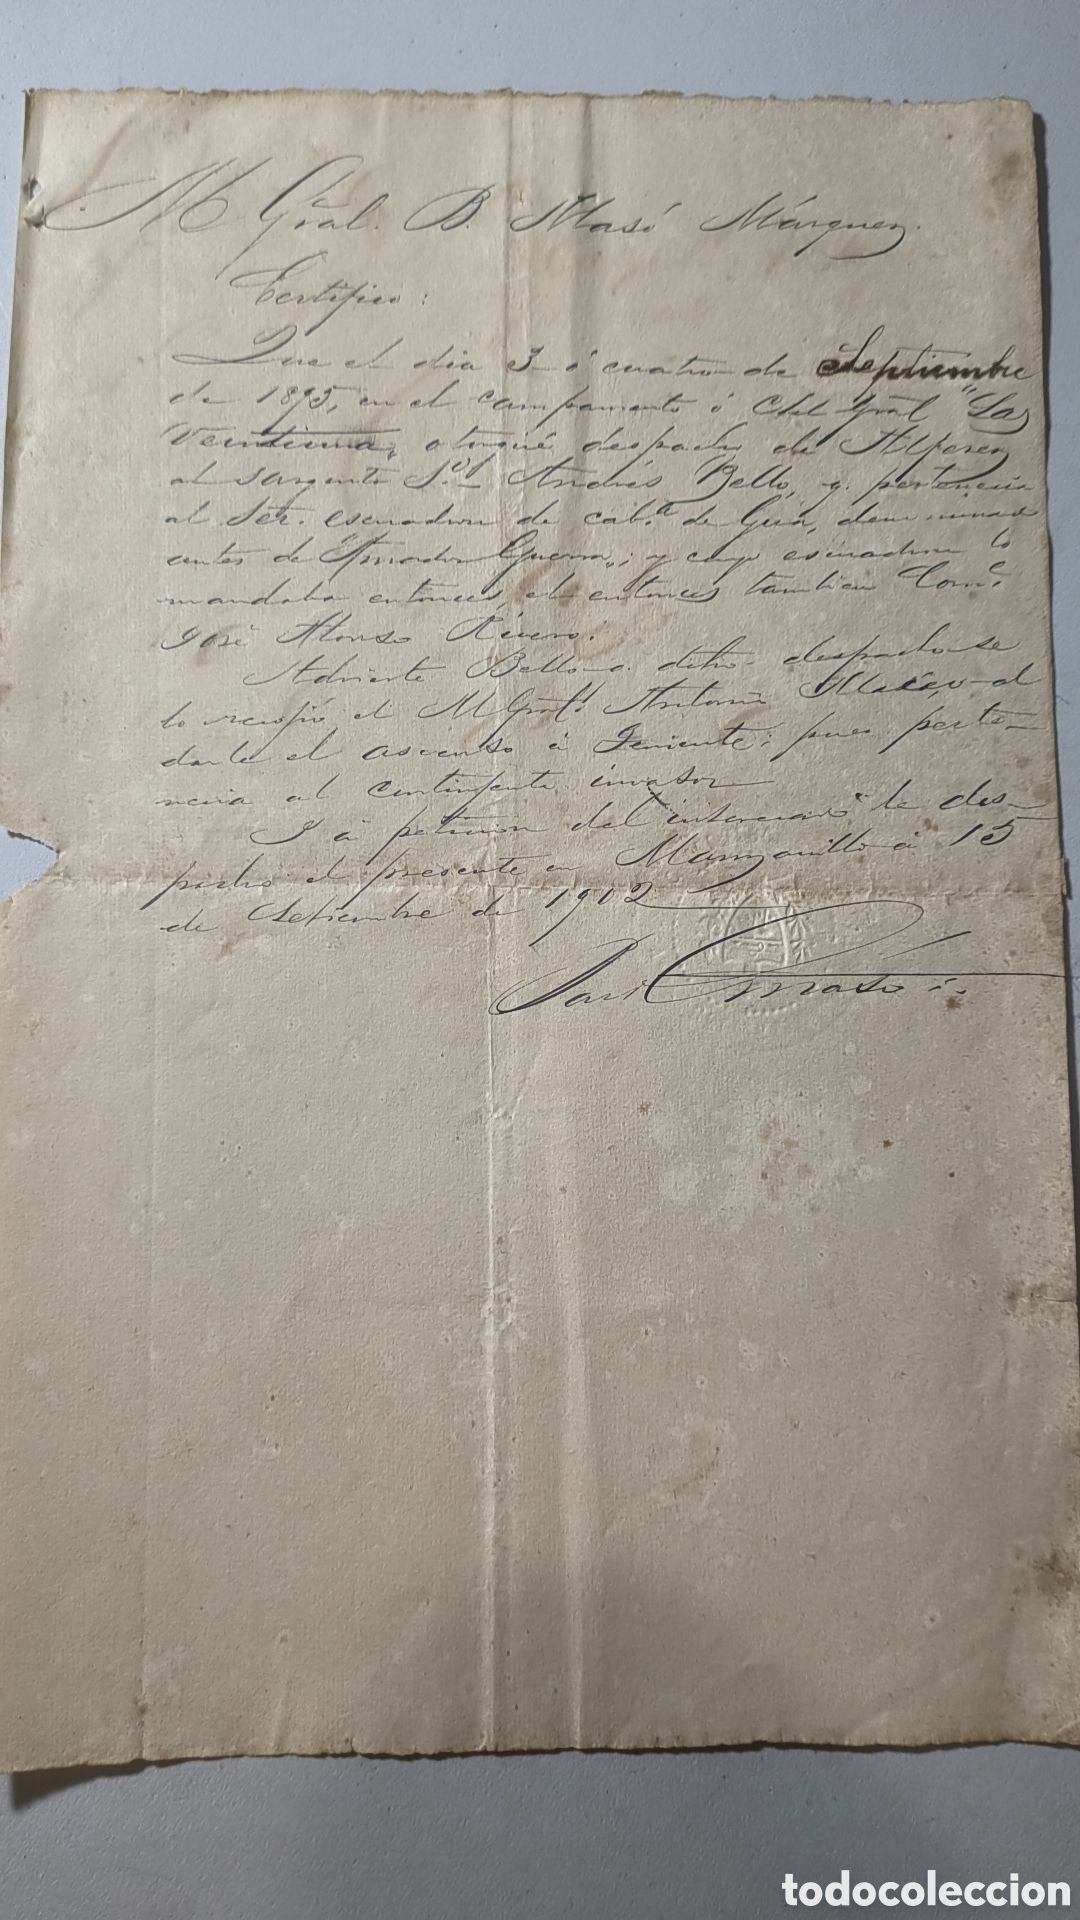 M. Gral. B. Masó Márquez.
Certifico:
Que el dia 3 ó cuatro de Septiembre
de 1895, en el campamento ó Ctel Gral "Las
otorgué despacho de Alferez
al Sargento 1º Andrés Bello, q. pertenecia
al 1er. escuadron de cabª de Guá, denominado
antes de "Amador Guerra"; y cuyo escuadron lo
mandaba entonces, el entonces tambien Comte
José Alonso Rivero.
Advierte Bello q. dicho despacho se
lo recogió el M Gral. Antonio Maceo al
darle el ascenso á Teniente; pues perte-
necia al contingente invasor
I á peticion del interesado le des-
pacho el presente en Manzanillo á 15
de Setiembre de 1902
Masó
todocoleccion